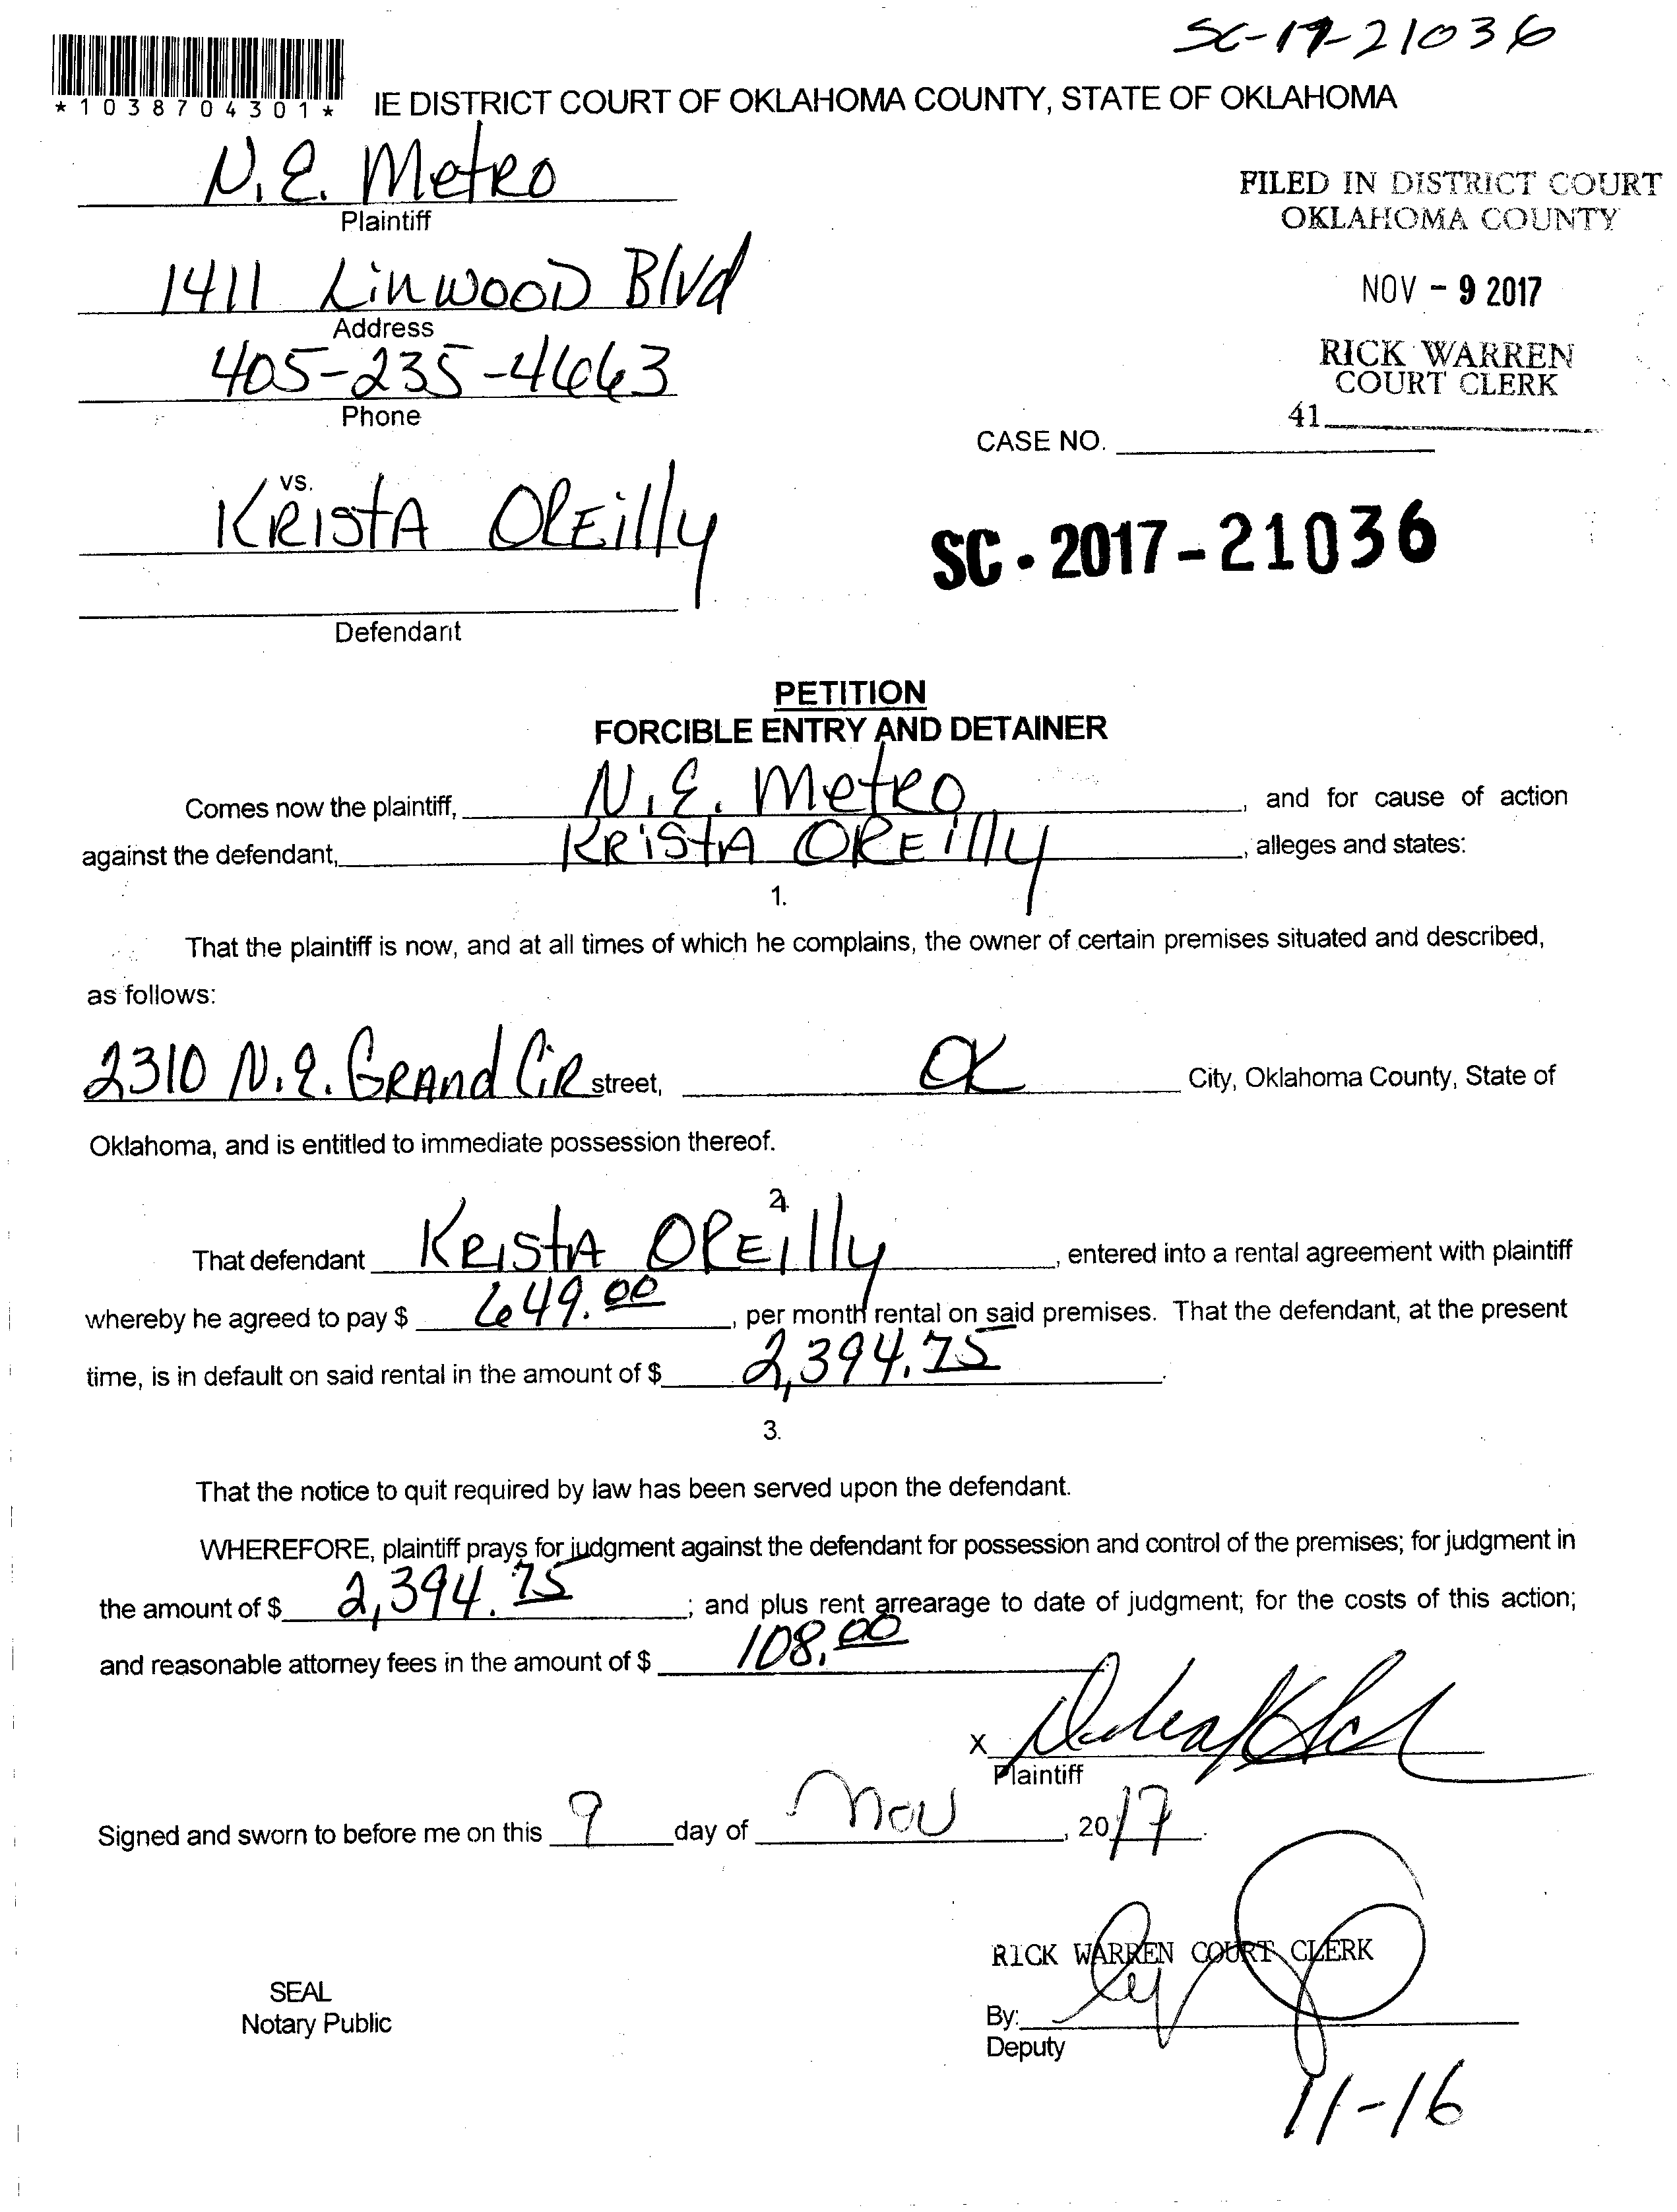 SC-17-21036
*1038704301*
IE DISTRICT COURT OF OKLAHOMA COUNTY, STATE OF OKLAHOMA
N.E. Metro
Plaintiff
FILED IN DISTRICT COURT
OKLAHOMA COUNTY
1411 Linwood Blvd
Address
NOV - 9 2017
405-235-4663
Phone
RICK WARREN
COURT CLERK
41
CASE NO.
vs.
Krista OReilly
SC - 2017-21036
Defendant
PETITION
FORCIBLE ENTRY AND DETAINER
Comes now the plaintiff, N.E. Metro, and for cause of action
against the defendant, Krista OReilly, alleges and states:
1.
That the plaintiff is now, and at all times of which he complains, the owner of certain premises situated and described,
as follows:
2310 N.E. Grand Cir street, OK City, Oklahoma County, State of
Oklahoma, and is entitled to immediate possession thereof.
2.
That defendant Krista OReilly, entered into a rental agreement with plaintiff
whereby he agreed to pay $ 649.00, per month rental on said premises. That the defendant, at the present
time, is in default on said rental in the amount of $ 2,394.75.
3.
That the notice to quit required by law has been served upon the defendant.
WHEREFORE, plaintiff prays for judgment against the defendant for possession and control of the premises; for judgment in
the amount of $ 2,394.75; and plus rent arrearage to date of judgment; for the costs of this action;
and reasonable attorney fees in the amount of $ 108.00
X
Plaintiff
Signed and sworn to before me on this 9 day of Nov, 2017.
RICK WARREN COURT CLERK
SEAL
Notary Public
By:
Deputy
11-16